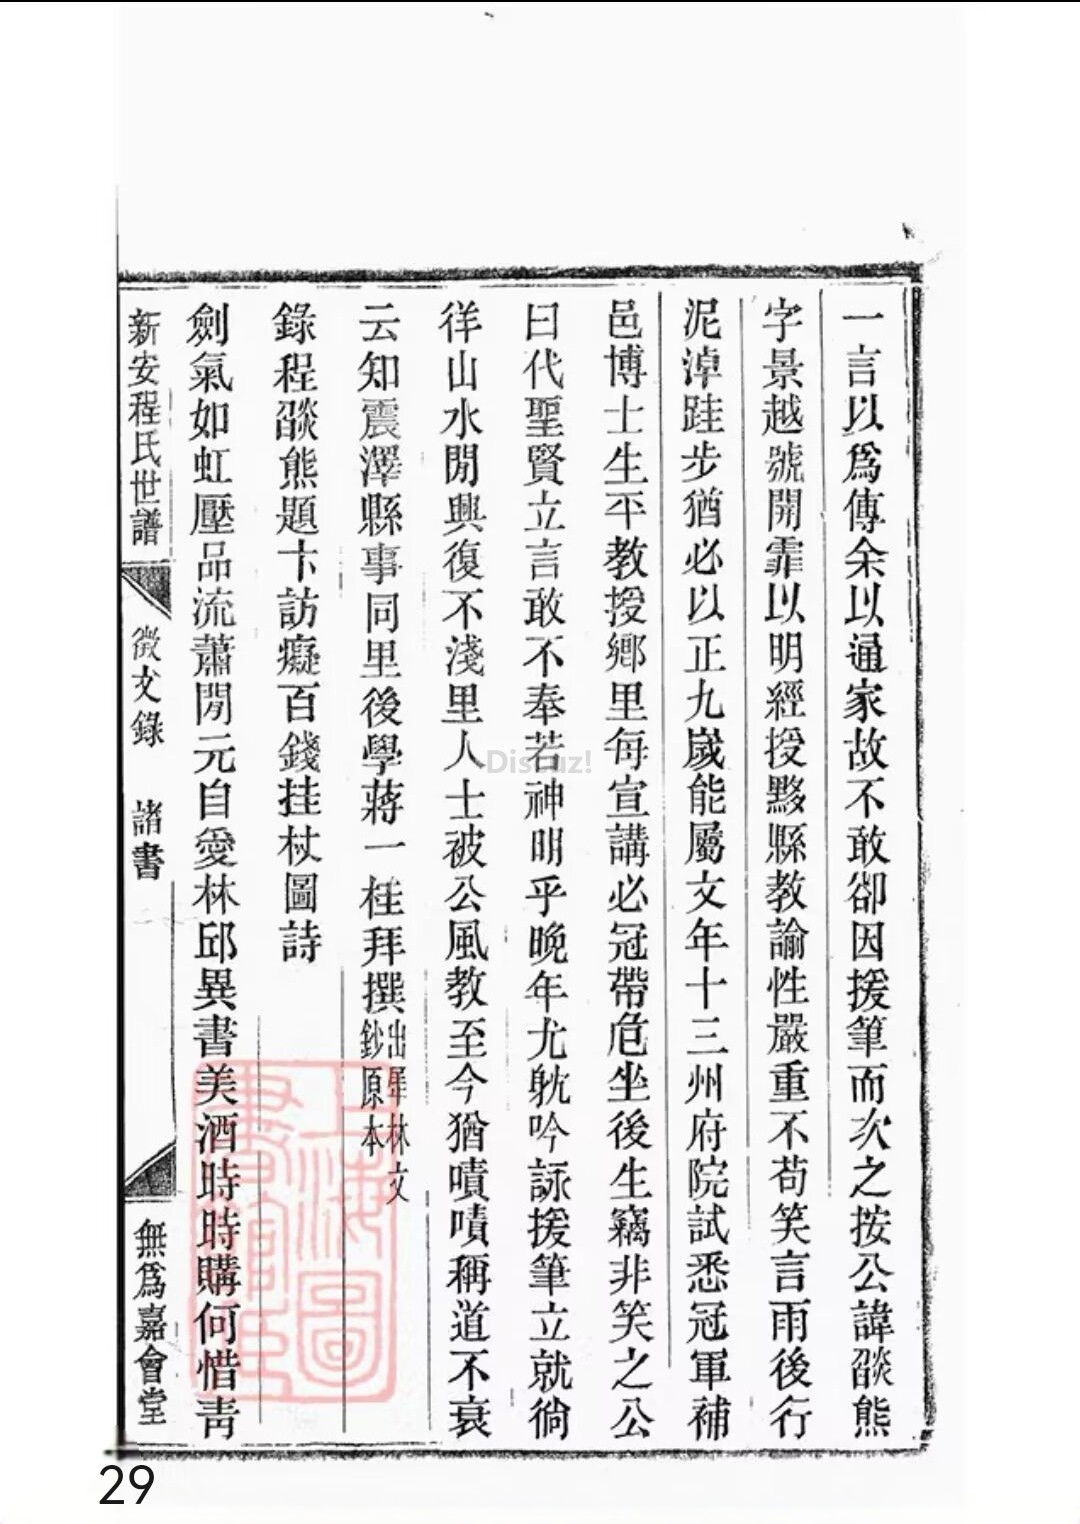 一言以爲傳余以通家故不敢卻因援筆而次之按公諱燄熊
字景越號開霏以明經授黟縣教諭性嚴重不苟笑言雨後行
泥淖跬步猶必以正九歲能屬文年十三州府院試悉冠軍補
邑博士生平教授鄉里每宣講必冠帶危坐後生竊非笑之公
曰代聖賢立言敢不奉若神明乎晚年尤躭吟詠援筆立就徜
徉山水閒興復不淺里人士被公風教至今猶嘖嘖稱道不衰
云知震澤縣事同里後學蔣一桂拜撰出犀林文
鈔原本
錄程燄熊題卞訪癡百錢挂杖圖詩
劍氣如虹壓品流蕭閒元自愛林邱異書美酒時時購何惜靑
新安程氏世譜 徵文錄 諸書 無爲嘉會堂
上海圖
書館藏
Discuz!
29